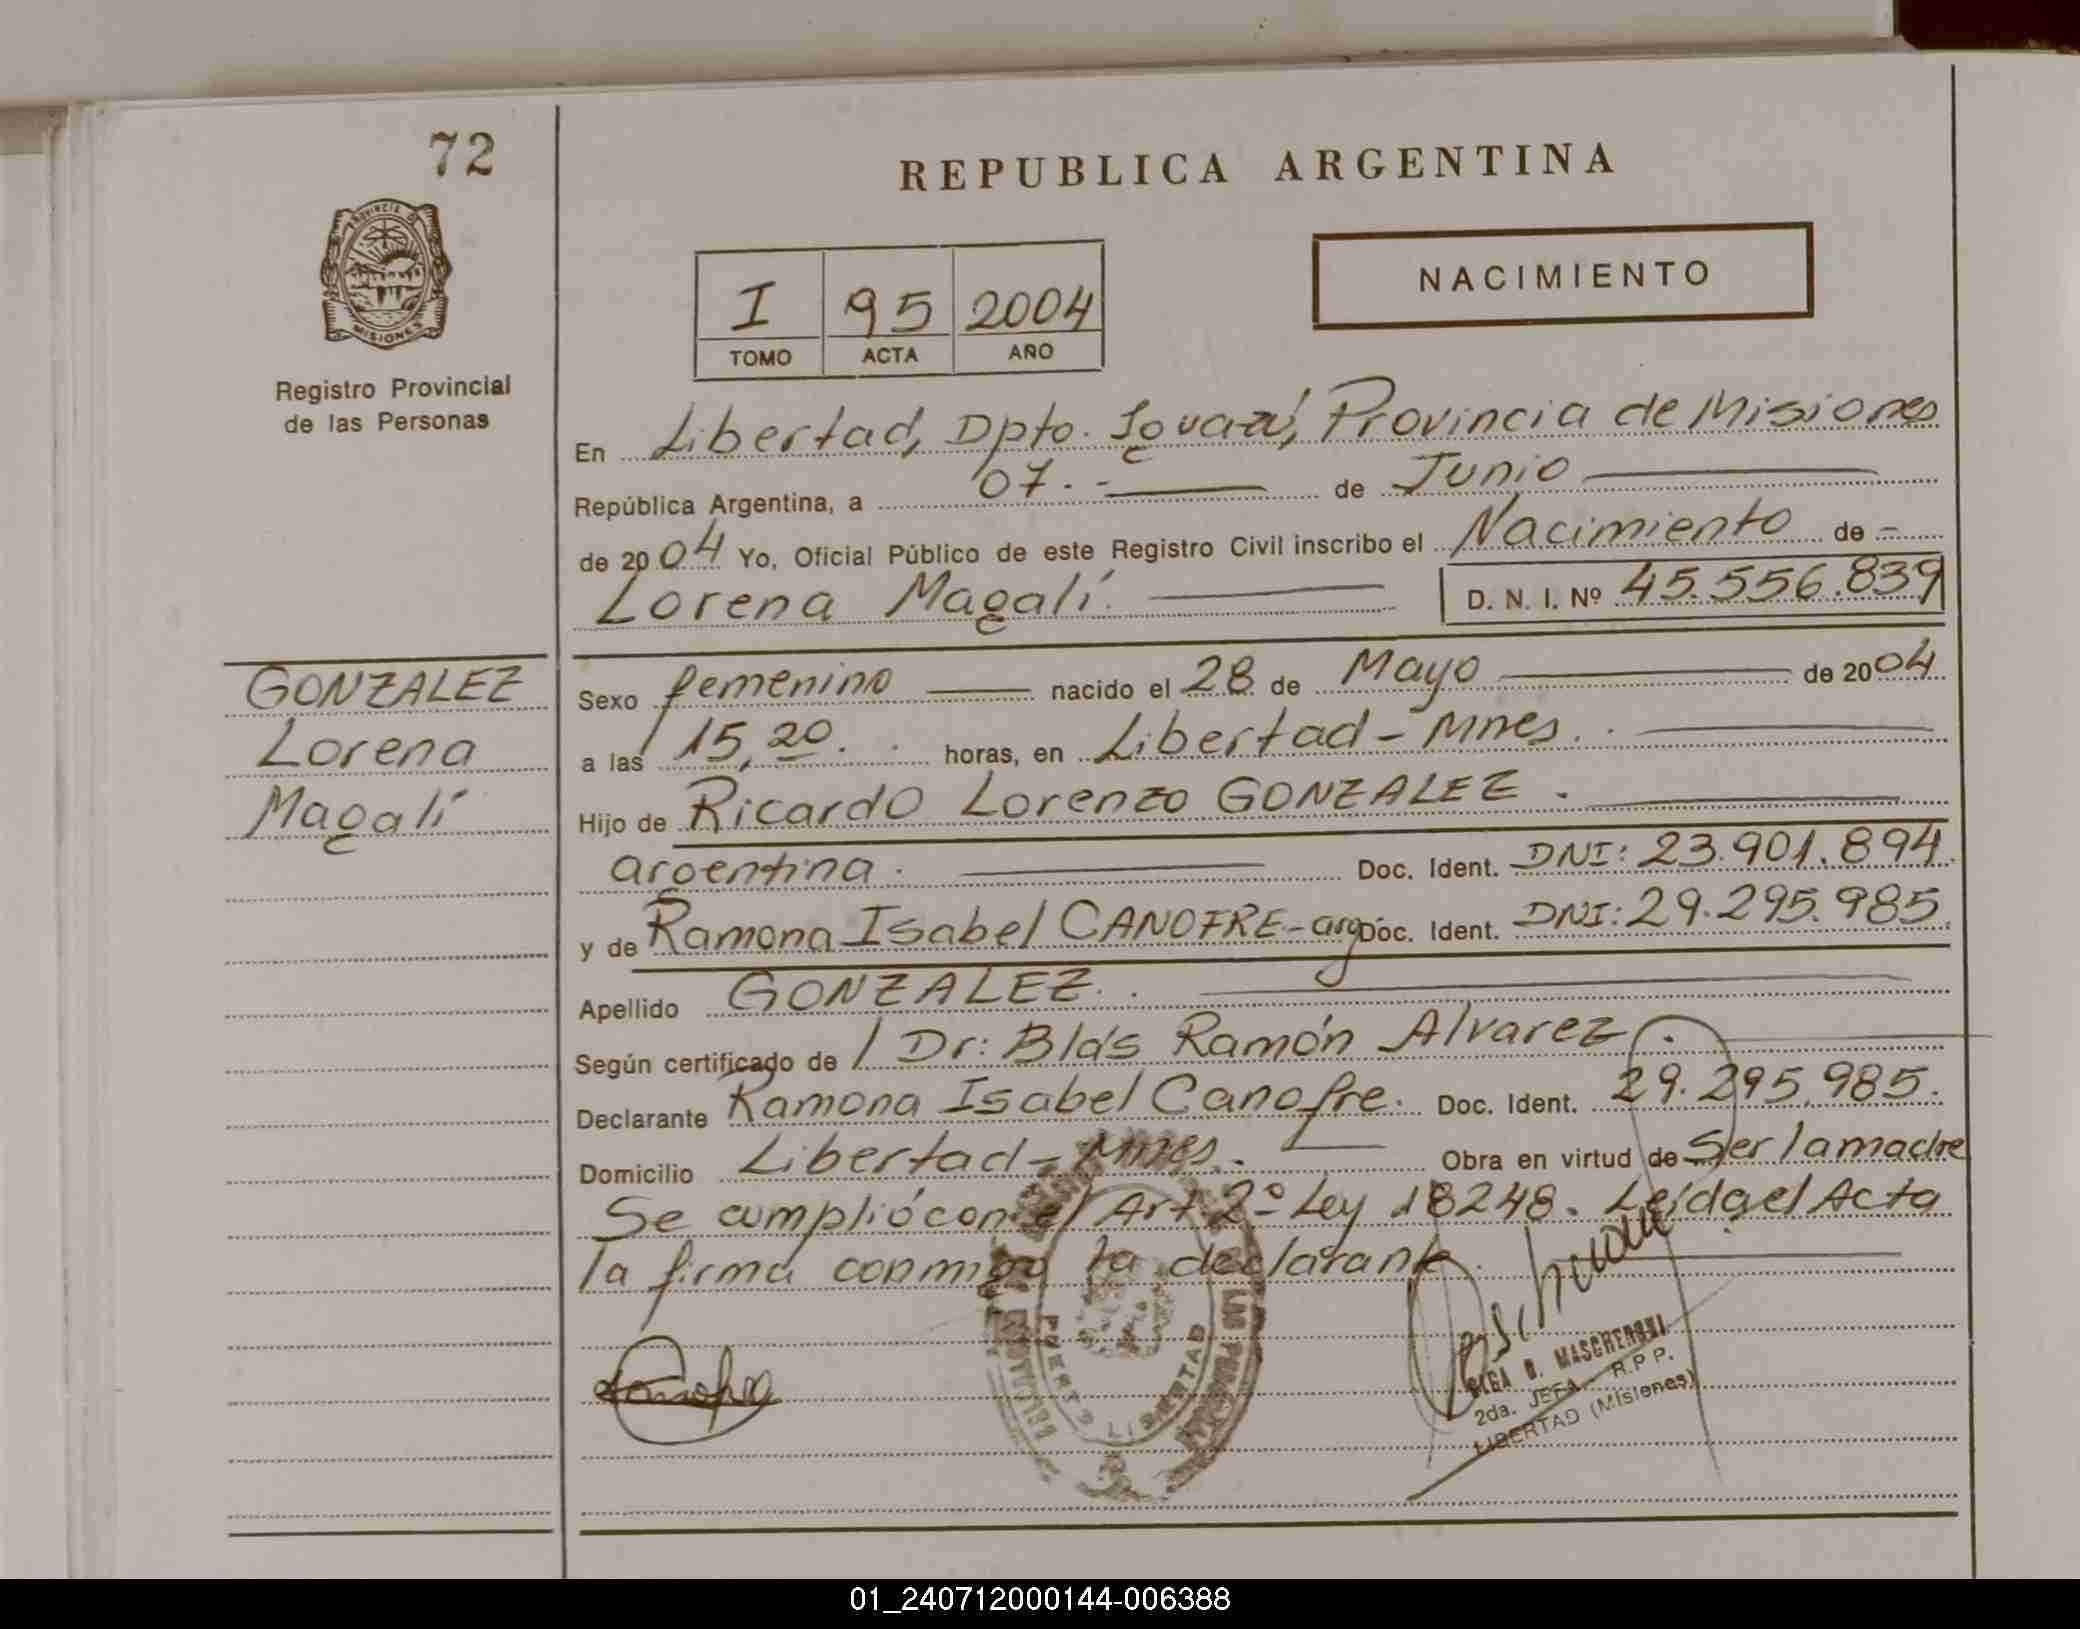 72
REPUBLICA ARGENTINA
PROVINCIA D
MISIONES
Registro Provincial
de las Personas
I 95 2004
TOMO ACTA AÑO
NACIMIENTO
En Libertad, Dpto. Iguazú, Provincia de Misiones
República Argentina, a 07.- de Junio
de 2004 Yo, Oficial Público de este Registro Civil inscribo el Nacimiento de -
Lorena Magalí. D. N. I. Nº 45.556.839
GONZALEZ
Lorena
Magalí
Sexo femenino nacido el 28 de Mayo de 2004
a las 15,20. horas, en Libertad - Mnes.
Hijo de Ricardo Lorenzo GONZALEZ.
argentina. Doc. Ident. DNI: 23.901.894
y de Ramona Isabel CANOFRE - arg Doc. Ident. DNI: 29.295.985.
Apellido GONZALEZ.
Según certificado de Dr: Blás Ramón Alvarez.
Declarante Ramona Isabel Canofre. Doc. Ident. 29.295.985.
Domicilio Libertad - Mnes. Obra en virtud de Ser la madre
Se cumplió con el Art 2º Ley 18248. Leída el Acta
la firma conmigo la declarante.
PUERTO LIBERTAD
LAS PERSONAS
OLGA B. MASCHERONI
2da. JEFA R.P.P.
LIBERTAD (Misiones)
01_240712000144-006388